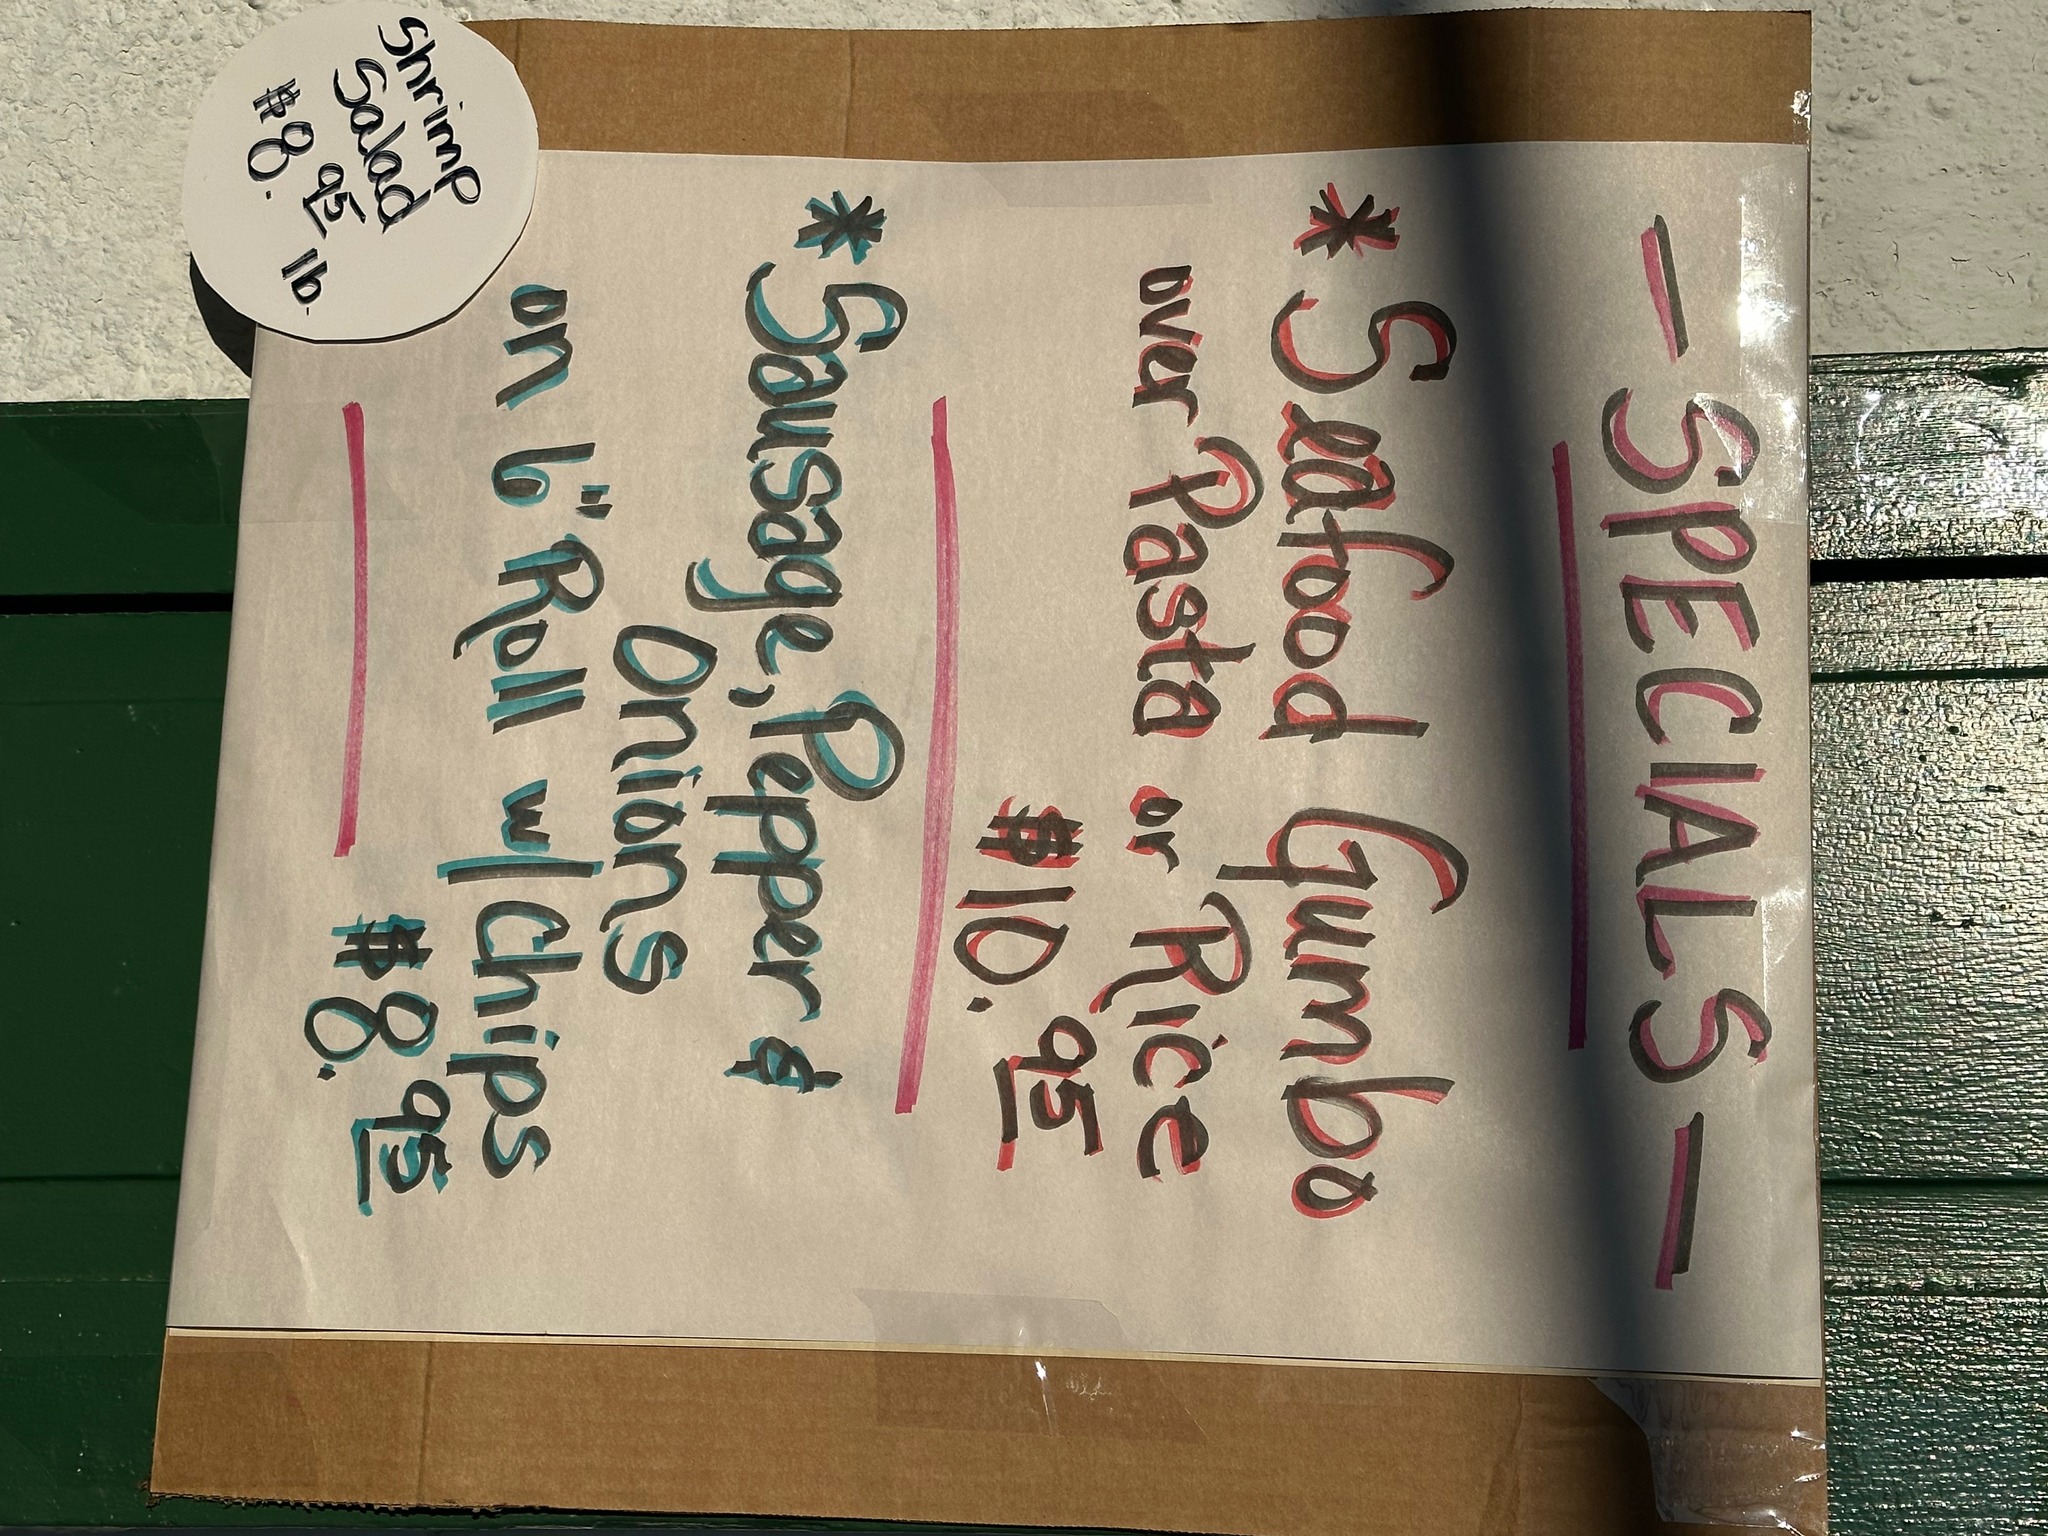 - SPECIALS -
* Seafood Gumbo
over Pasta or Rice
$10.95
* Sausage, Pepper &
Onions
on 6" Roll w/ Chips
$8.95
Shrimp
Salad
$8.95 lb.